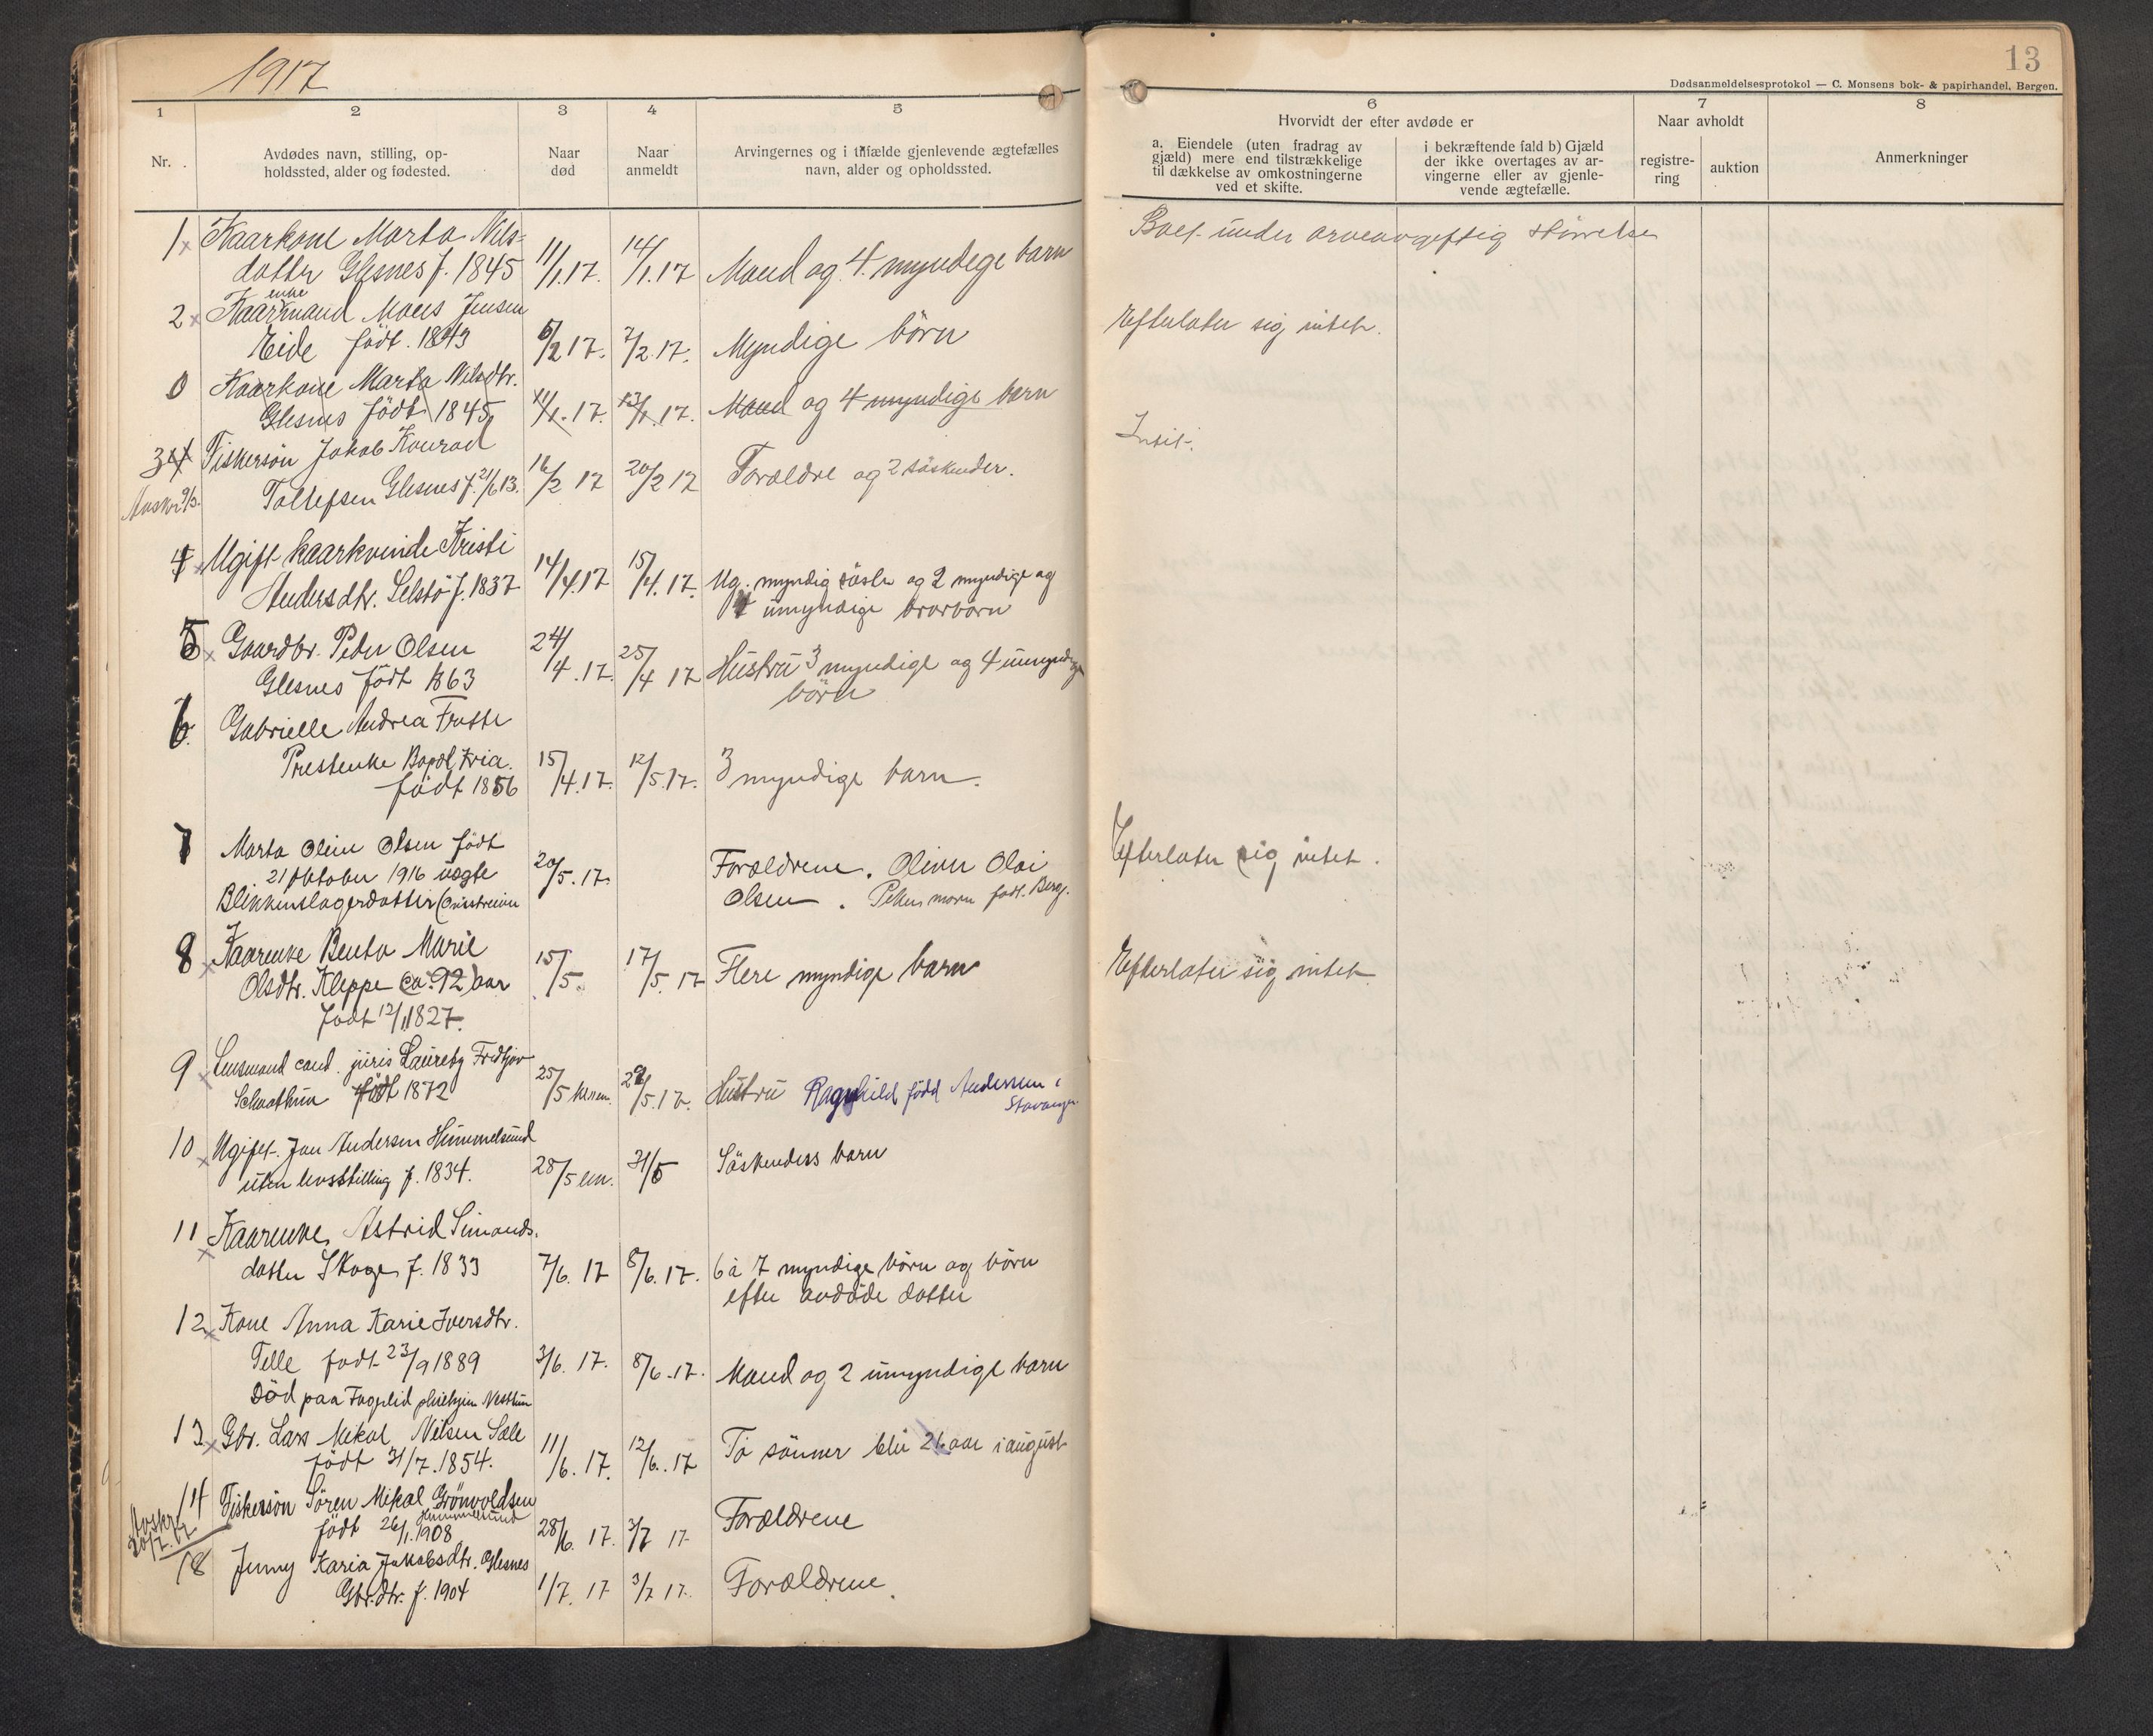 1917
13
Dødsanmeldelsesprotokol — C. Monsens bok- & papirhandel, Bergen.
1 2 3 4 5 6 7 8
Nr.
Avdødes navn, stilling, op-
holdssted, alder og fødested.
Naar
død
Naar
anmeldt
Arvingernes og i tilfælde gjenlevende ægtefælles
navn, alder og opholdssted.
Hvorvidt der efter avdøde er
a. Eiendele (uten fradrag av
gjæld) mere end tilstrækkelige
til dækkelse av omkostningerne
ved et skifte.
i bekræftende fald b) Gjæld
der ikke overtages av ar-
vingerne eller av gjenle-
vende ægtefælle.
Naar avholdt
registre-
ring
auktion
Anmerkninger
1 Kaarkone Marta Nils-
datter Glesnes f. 1845 11/1.17. 14/1.17 Mand og 4 myndege barn
Boet under arveavgiftig størrelse
enke
2 Kaarmand Mons Jensen
Eide født. 1843 6/2 17. 7/2.17. Myndige börn
Efterlater sig intet.
0 Kaarkone Marta Nilsdtr.
Glesnes født 1845 11/1.17. 13/1 17. Mand og 4 myndige barn
3 Fiskersön Jakob Konrad
Tollefsen Glesnes f. 21/6 13. 16/2 17 20/2 17 Forældre og 2 söskender.
Intet.
Avskr. 9/3.
4 Ugift kaarkvinde Kristi
Andersdtr. Selstö f. 1837 14/4.17 15/4.17. Ug. myndig söster og 2 myndige og
umyndige brorbörn
5 Gaardbr. Peder Olsen
Glesnes født 1863 24/4.17. 25/4 17 Hustru 3 myndige og 4 umyndige
börn
6 Gabrielle Andrea
Prestenke
født 1856 15/4.17. 12/5.17. 3 myndige barn.
7 Marta Oline Olsen født
21 Oktober 1916 uægte
Blikkenslagerdatter 20/5.17. Forældrene. Oliver Olai
Olsen. født. Berg.
Efterlater sig intet.
8 Kaarenke Benta Marie
Olsdtr. Kleppe ca. 92 aar
født 12/11 1827. 15/5. 17/5.17 Flere myndige barn
Efterlater sig intet
9 Lensmand cand. juris Lauretz Fridtjov
Schnathun født 1872 25/5 29/5.17. Hustru Ragnhild född Andersen i
Stavanger
10 Ugift. Jan Andersen Hummelsund
uten livsstilling f. 1834. 28/5 em. 31/5 Söskendes barn
11 Kaarenke Astrid Simonds.
datter Skoge f. 1833 7/6.17 8/6.17. 6 à 7 myndige börn og börn
efter avdøde datter
12 Kone Anna Karie Iversdtr.
Telle født 23/9 1889 3/6.17. 8/6.17. Mand og 2 umyndige barn
Død paa Fagerlid pleiehjem Nesttun
13 Gbr. Lars Mikal Nilsen Sæle
født 31/7.1854. 11/6.17. 12/6.17 To sönner blir 21 aar i august
14 Fiskersön Sören Mikal Grönvoldsen
Hummelsund
født 26/1.1908 28/6.17. 3/7 17 Forældrene
Avskr.
20/7.17
18 Jenny Karia Jakobsdtr. Glesnes
Gbr.dtr. f. 1904 1/7.17 3/7 17. Forældrene.